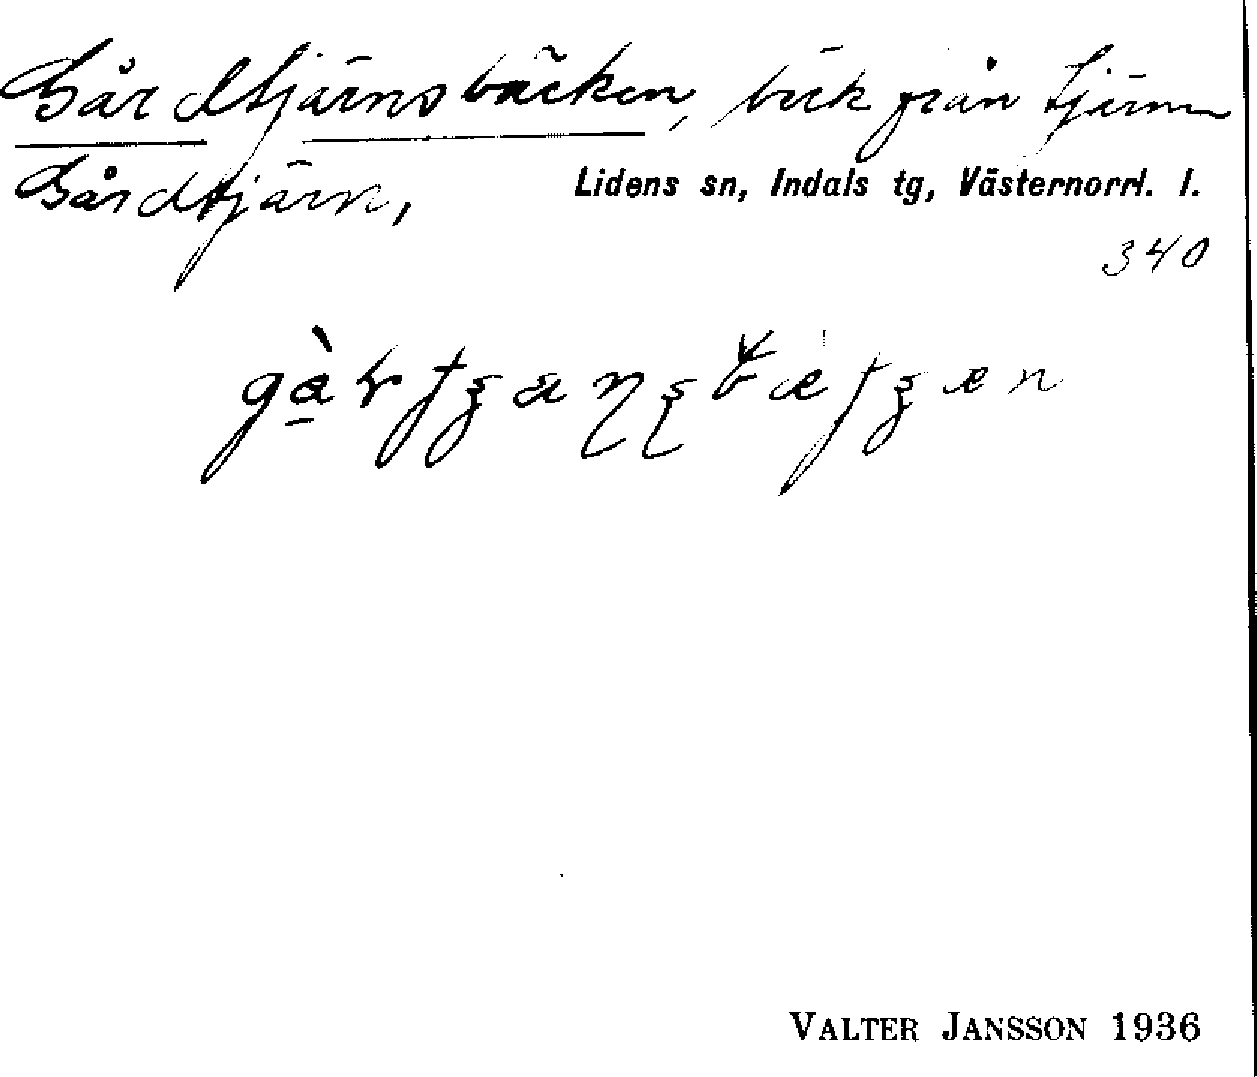 Gårdtjärnsbäcken, bäck från tjärnen
Gårdtjärn,
Lidens sn, Indals tg, Västernorrl. l.
340
VALTER JANSSON 1936